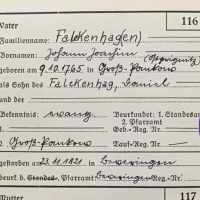 Vater
116
Familienname: Falckenhagen)
Vornamen: Johann Joachim
geboren am 9.10.1765 in Groß-Pankow
als Sohn des Falckenhag, Daniel
Bekenntnis: evang.
Beurkundet: 1. Standesa
2. Pfarramt
Geb.-Reg. Nr.
Groß-Pankow
Tauf-Reg. Nr.
gestorben am 23.4.1821 in
beurk. b. Standes-, Pfarramt
Reg.-Nr.
117
Mutter